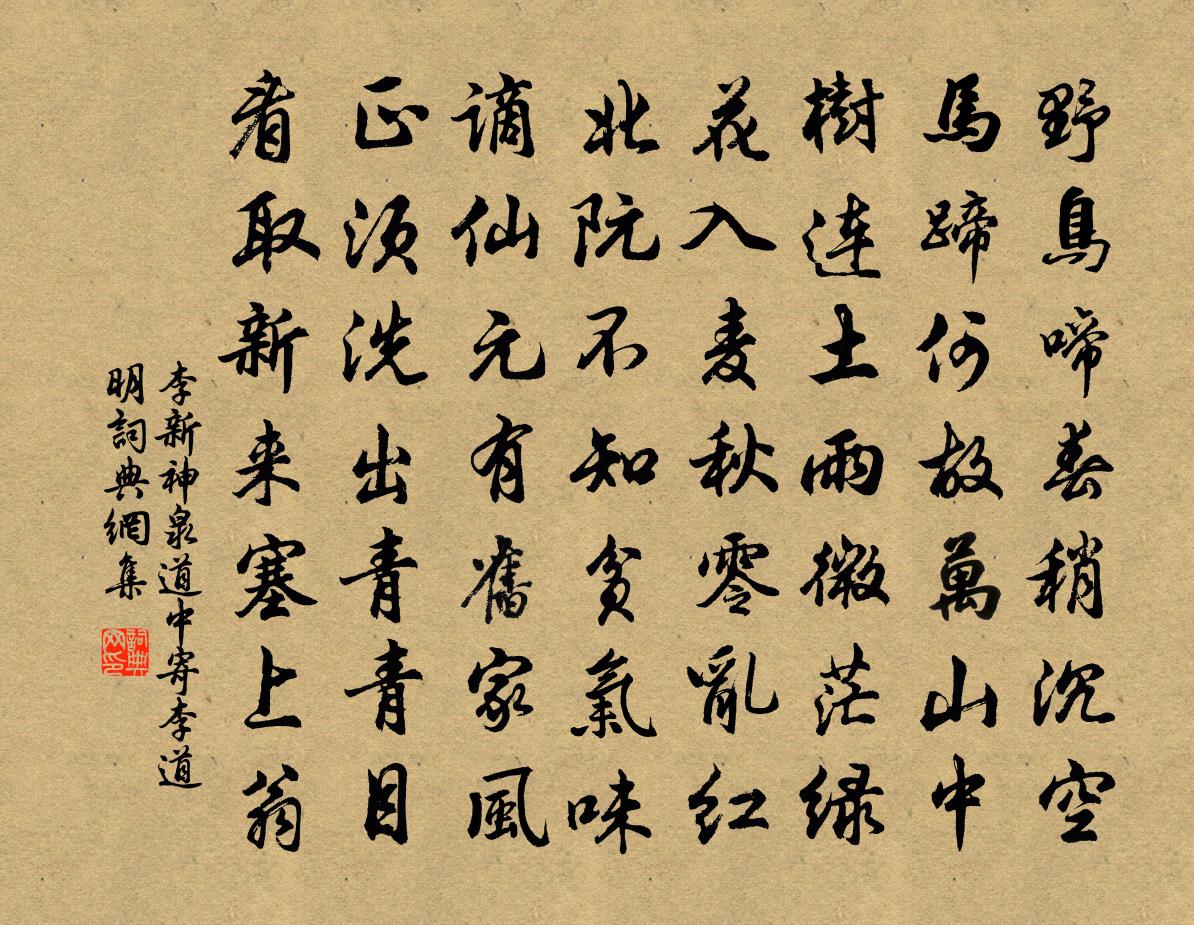 野鳥啼春稍沉空
馬蹄何故萬山中
樹連土雨微茫緑
花入麦秋零亂紅
北阮不知貧氣味
謫仙元有舊家風
正須洗出青青目
看取新来塞上翁
李新神泉道中寄李道
明詞典網集
詞典网印